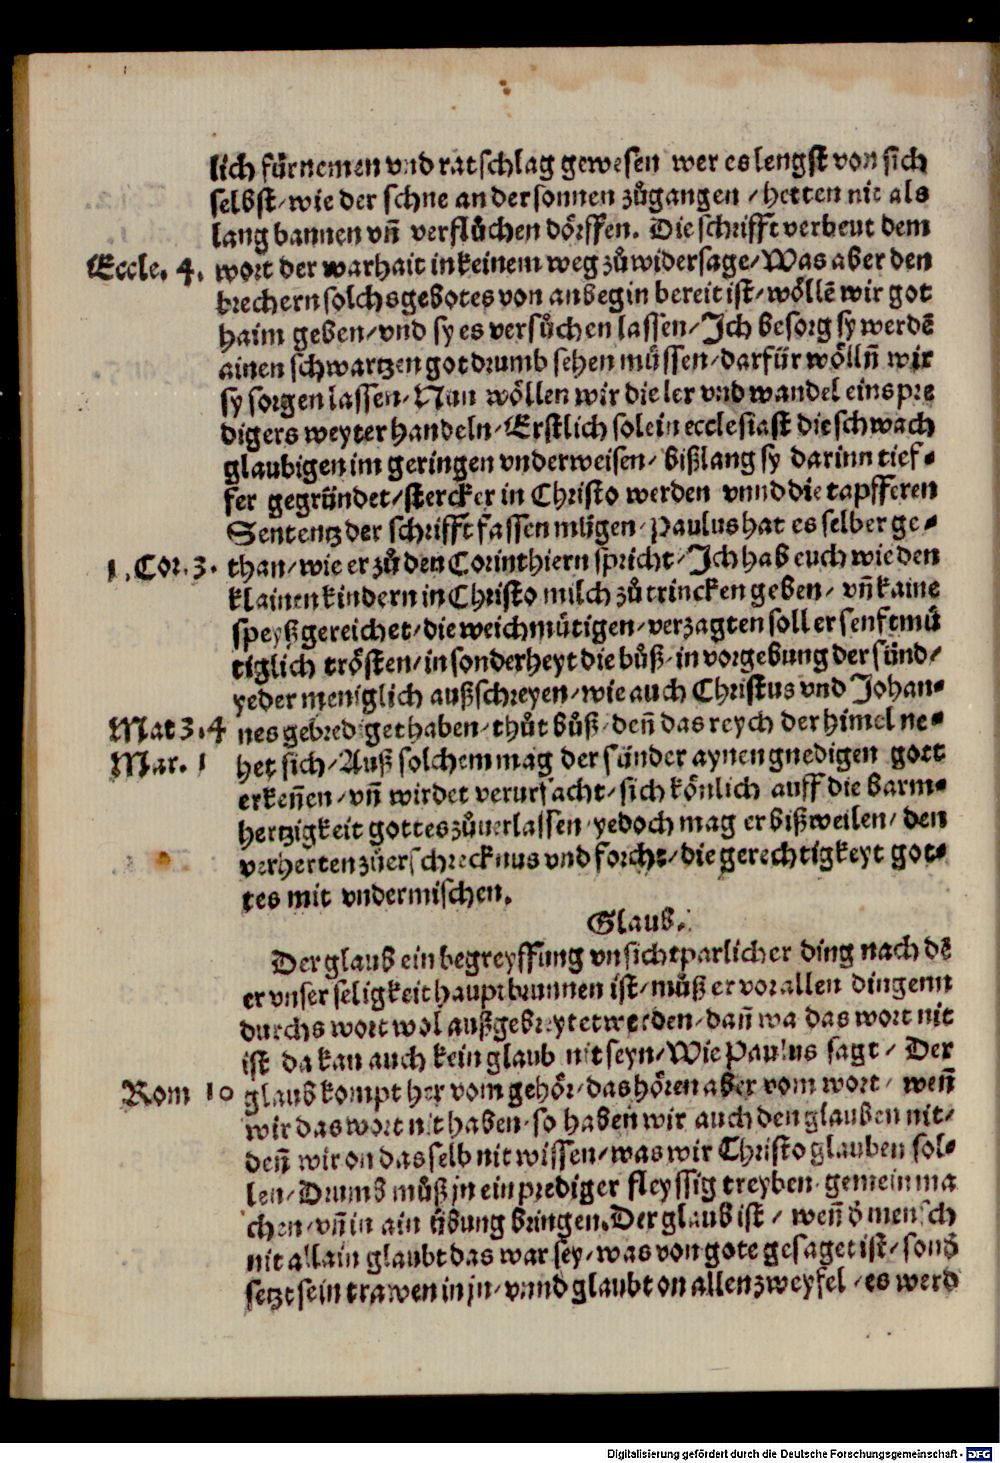 lich fürnemen vnd ratschlag gewesen wer es lengst von sich
selbst/ wie der schne an der sonnen zůgangen / hetten nie als
lang bannen vñ verflůchen dörffen. Die schrifft verbeut dem
Eccle. 4. wort der warhait in keinem weg zů widersage/ Was aber den
brechern solchs gebotes von anbegin bereit ist/ wöllē wir got
haim geben/ vnd sy es versůchen lassen/ Ich besorg sy werdē
ainen schwartzen got drumb sehen müssen/ darfür wöllñ wir
sy sorgen lassen/ Nun wöllen wir die ler vnd wandel eins pre
digers weyter handeln/ Erstlich sol ein ecclesiast die schwach
glaubigen im geringen vnderweisen/ bißlang sy darinn tief⸗
fer gegründet/ stercker in Christo werden vnnd die tapfferen
Sententz der schrifft fassen mügen/ Paulus hat es selber ge⸗
1. Cor. 3. than/ wie er zů den Corinthiern spricht/ Ich hab euch wie den
klainen kindern in Christo milch zů trincken geben/ vñ kaine
speyß gereichet/ die weichmütigen/ verzagten soll er senftmü
tiglich trösten/ in sonderheyt die bůß/ in vorgebung der sünd/
yeder meniglich außschreyen/ wie auch Christus vnd Johan⸗
Mat 3. 4 nes gebrediget haben/ thůt bůß/ deñ das reych der himel ne⸗
Mar. 1 het sich/ Auß solchem mag der sünder aynen gnedigen gott
erkeñen/ vñ wirdet verursacht/ sich könlich auff die barm⸗
hertzigkeit gottes zůuerlassen/ yedoch mag er bißweilen/ den
verherten zůerschrecknus vnd forcht/ die gerechtigkeyt got⸗
tes mit vndermischen.
Glaub.
Der glaub ein begreyffung vnsichtparlicher ding nach dē
er vnser seligkeit hauptbrunnen ist/ můß er vor allen dingenn
durchs wort wol außgebreytet werden/ dañ wa das wort nit
ist da kan auch kein glaub nit seyn/ Wie Paulus sagt/ Der
Rom 10 glaub kompt her vom gehör/ das hören aber vom wort/ weñ
wir das wort nit haben/ so haben wir auch den glauben nit/
deñ wir on das selb nit wissen/ was wir Christo glauben sol⸗
len/ Drumb můß jn ein prediger fleyssig treyben/ gemein ma
chen/ vñ in ain übung bringen. Der glaub ist / weñ d̕ mensch
nit allain glaubt das war sey/ was von gote gesaget ist/ sond̕
setzt sein trawen in jn/ vnnd glaubt on allen zweyfel / es werd
Digitalisierung gefördert durch die Deutsche Forschungsgemeinschaft - DFG